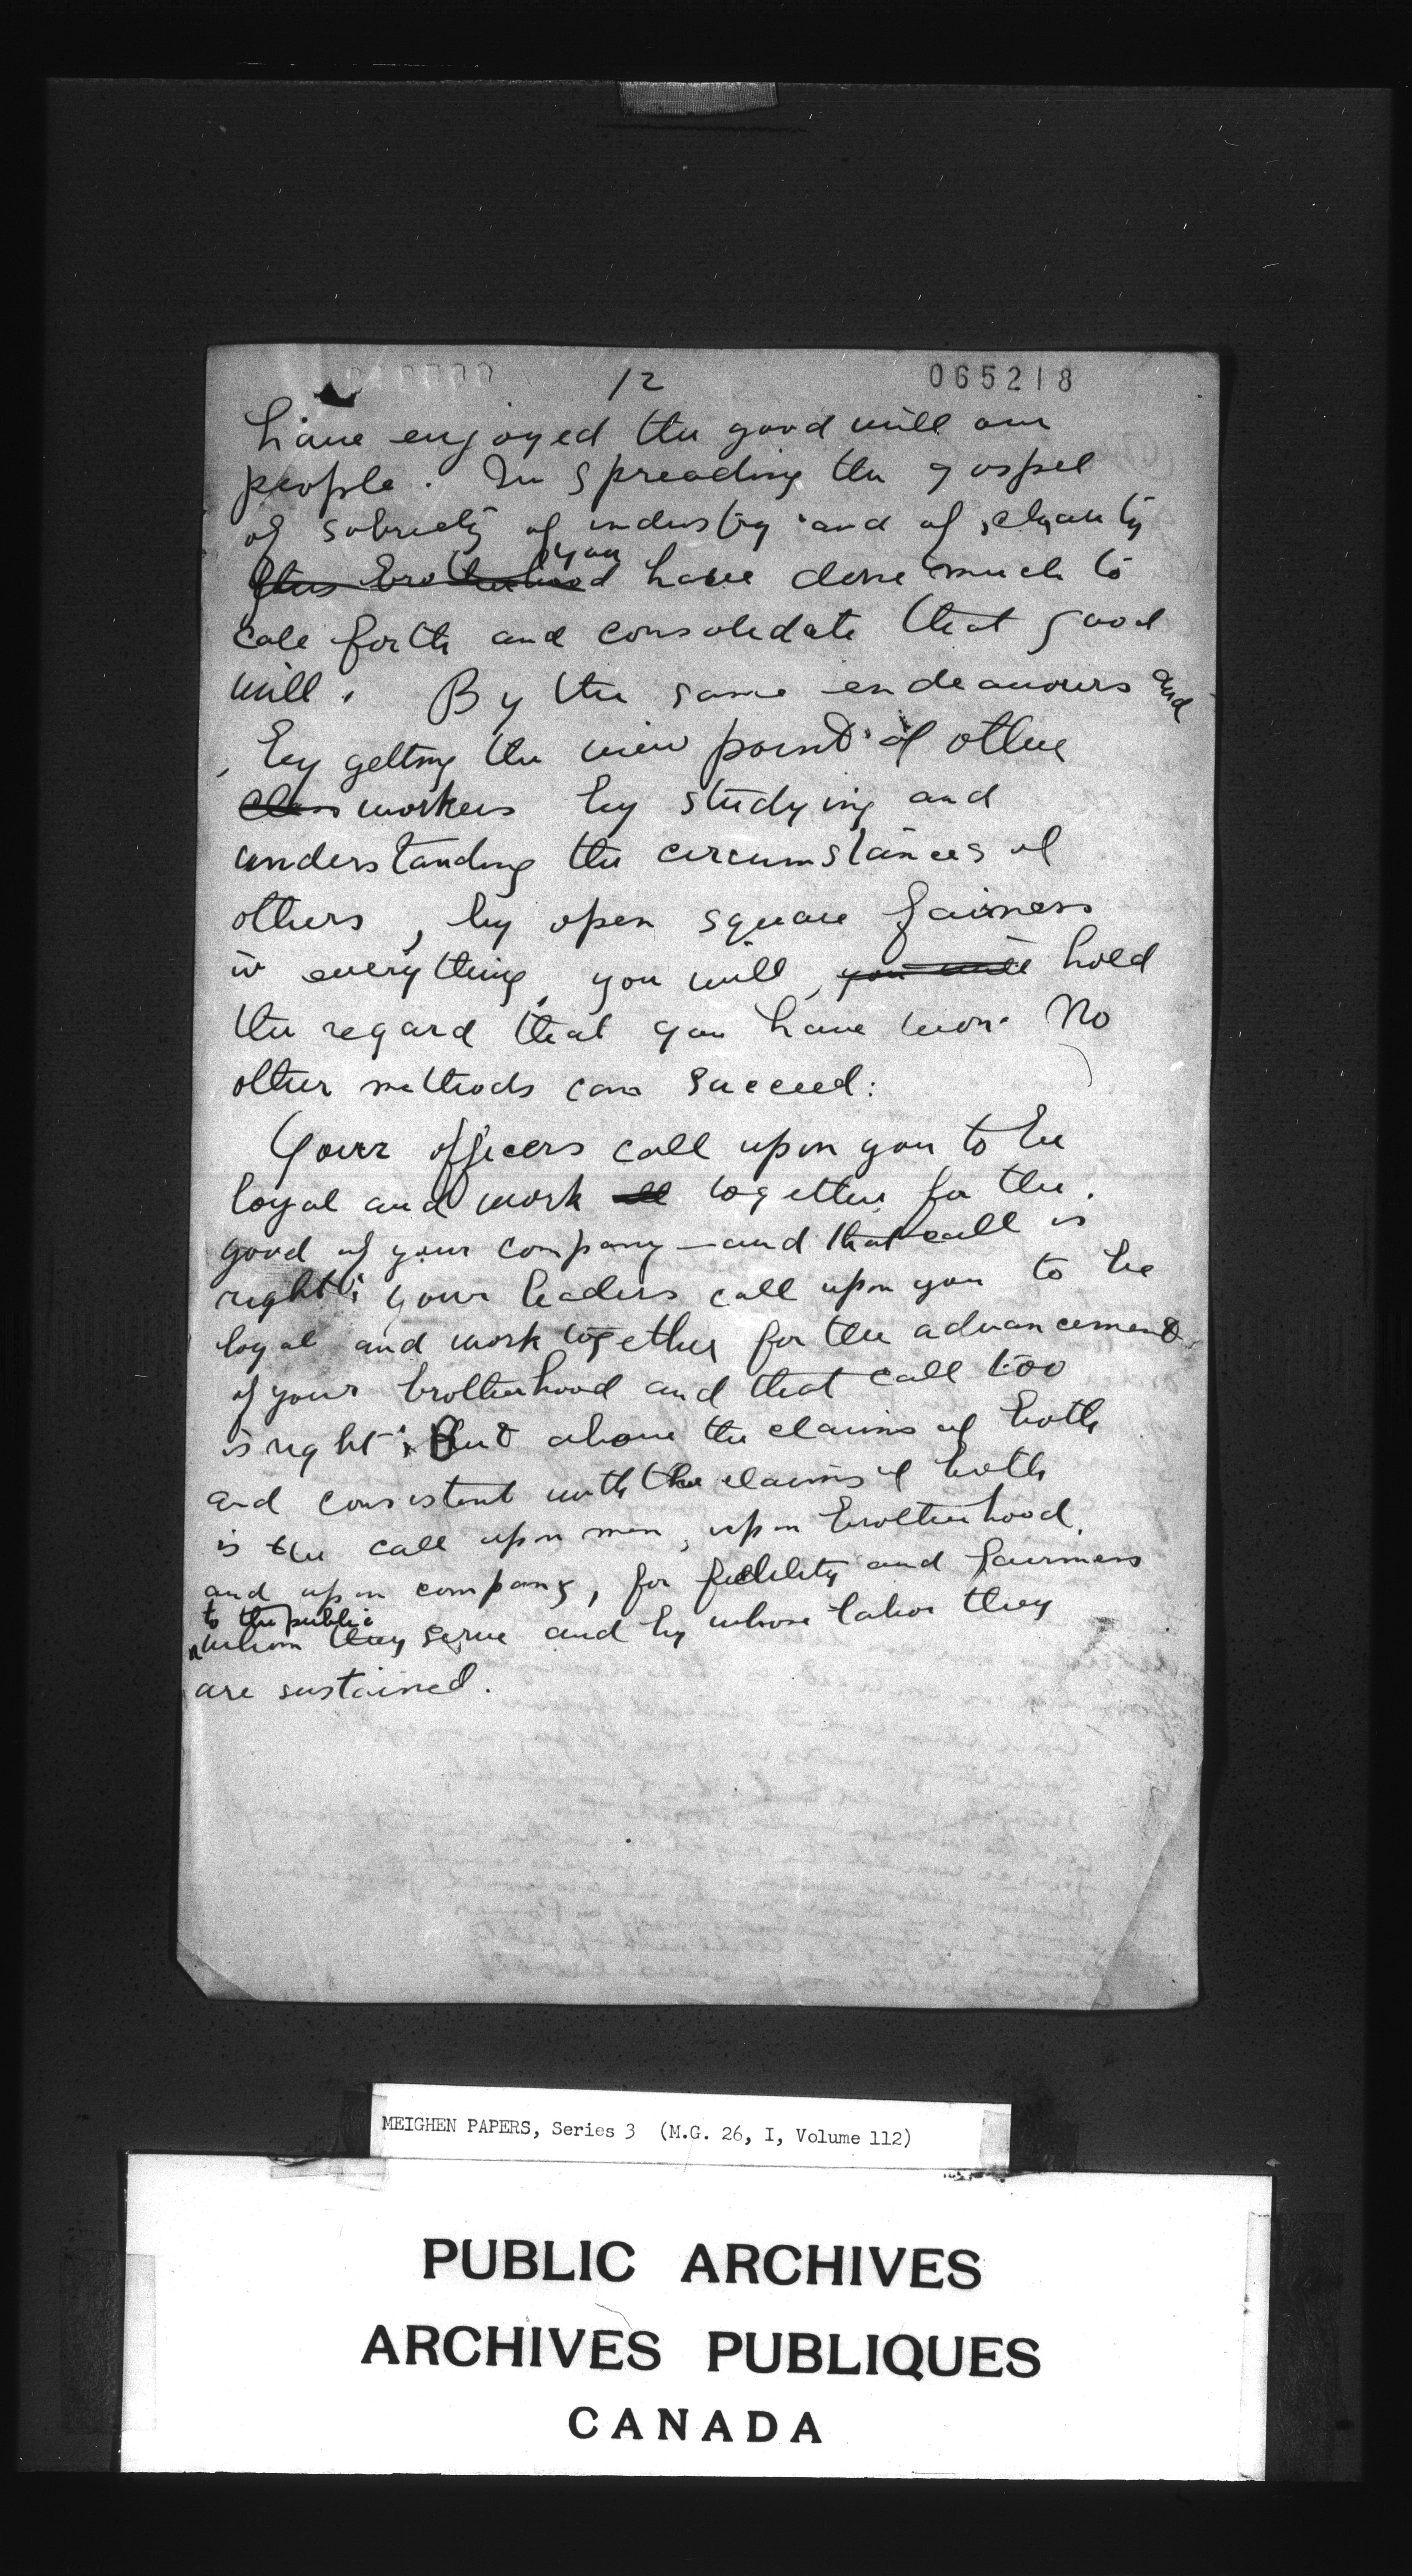 12
065218
have enjoyed the good will our
people. In spreading the gospel
of sobriety of industry and of charity
this brotherhood you have done much to
call forth and consolidate that good
will. By the same endeavours and
by getting the view point of other
class workers by studying and
understanding the circumstances of
others, by open square fairness
in everything, you will, you will hold
the regard that you have won. No
other methods can succeed:
Your officers call upon you to be
loyal and work all together for the
good of your company – and that call is
right; your leaders call upon you to be
loyal and work together for the advancement
of your brotherhood and that call too
is right; But above the claims of both
and consistent with the claims of both
is the call upon men, upon brotherhood,
and upon company, for fidelity and fairness
to the public
whom they serve and by whose labor they
are sustained.
MEIGHEN PAPERS, Series 3 (M.G. 26, I, Volume 112)
PUBLIC ARCHIVES
ARCHIVES PUBLIQUES
CANADA